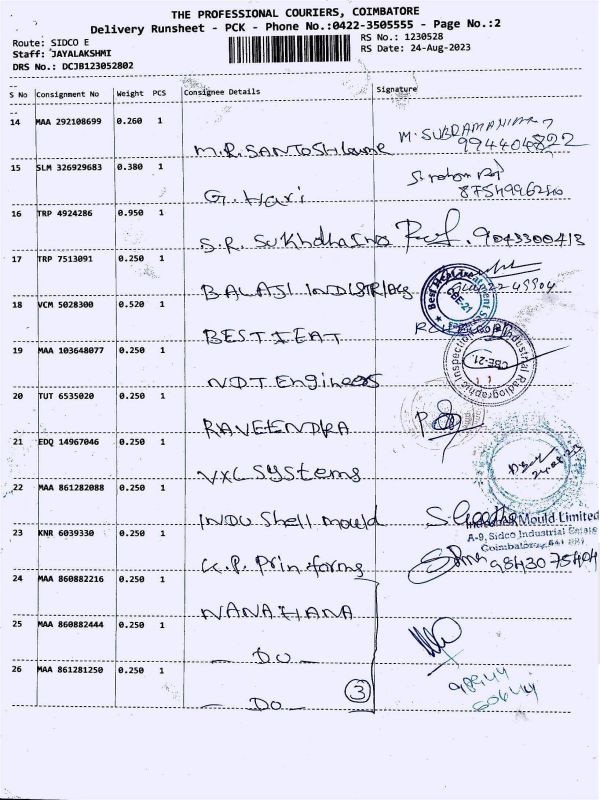 THE PROFESSIONAL COURIERS, COIMBATORE
Delivery Runsheet - PCK - Phone No:0422-3505555 - Page No.:2
Route: SIDCO E
Staff: JAYALAKSHMI
DRS No.: DCJB123052802
RS No.: 1230528
RS Date: 24-Aug-2023
S No Consignment No Weight PCS Consignee Details Signature
14 MAA 292108699 0.260 1
M.R. SANTOSH M. SUBRAMANIAN
15 SLM 326929683 0.380 1
G. Hari
16 TRP 4924286 0.950 1
S.R. 9043300413
17 TRP 7513091 0.250 1
BALAJI INDISTRIES
18 VCM 5028300 0.520 1
BEST HEAT
CBE-21
19 MAA 103648077 0.250 1
N.D.T Engineers
Industrial Radiographic Inspection
CBE-21.
20 TUT 6535020 0.250 1
RAVEENDRA
21 EDQ 14967046 0.250 1
VXL Systems
22 MAA 861282088 0.250 1
INDU Shell mould
Mould Limited
A-9, Sidco Industrial Estate
Coimbatore
23 KNR 6039330 0.250 1
K.P. Printforms 9843075404
24 MAA 860882216 0.250 1
NANAHANA
25 MAA 860882444 0.250 1
- DO -
26 MAA 861281250 0.250 1
- DO - 3